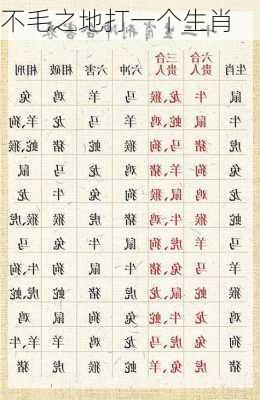 不毛之地打一个生肖
生肖 六合贵人 三合贵人 六冲 六害 相破 相刑
鼠 牛 龙,猴 马 羊 鸡 兔
牛 鼠 蛇,鸡 羊 马 龙 羊,狗
虎 猪 马,狗 猴 蛇 猪 蛇,猴
兔 狗 羊,猪 鸡 龙 马 鼠
龙 鸡 鼠,猴 狗 兔 牛 龙
蛇 猴 牛,鸡 猪 虎 猴 猴,虎
马 羊 虎,狗 鼠 牛 兔 马
羊 马 兔,猪 牛 鼠 狗 牛,狗
猴 蛇 鼠,龙 虎 猪 蛇 虎,蛇
鸡 龙 牛,蛇 兔 狗 鼠 鸡
狗 兔 虎,马 龙 鸡 羊 牛,羊
猪 虎 兔,羊 蛇 猴 虎 猪